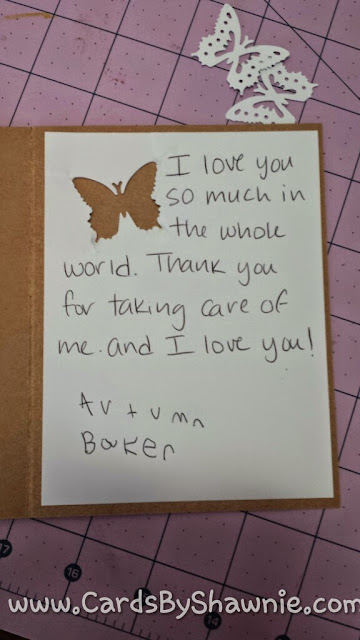 I love you
so much in
the whole
world. Thank you
for taking care of
me. and I love you!
Autumn
Baker
17
16
14
www.CardsByShawnie.com